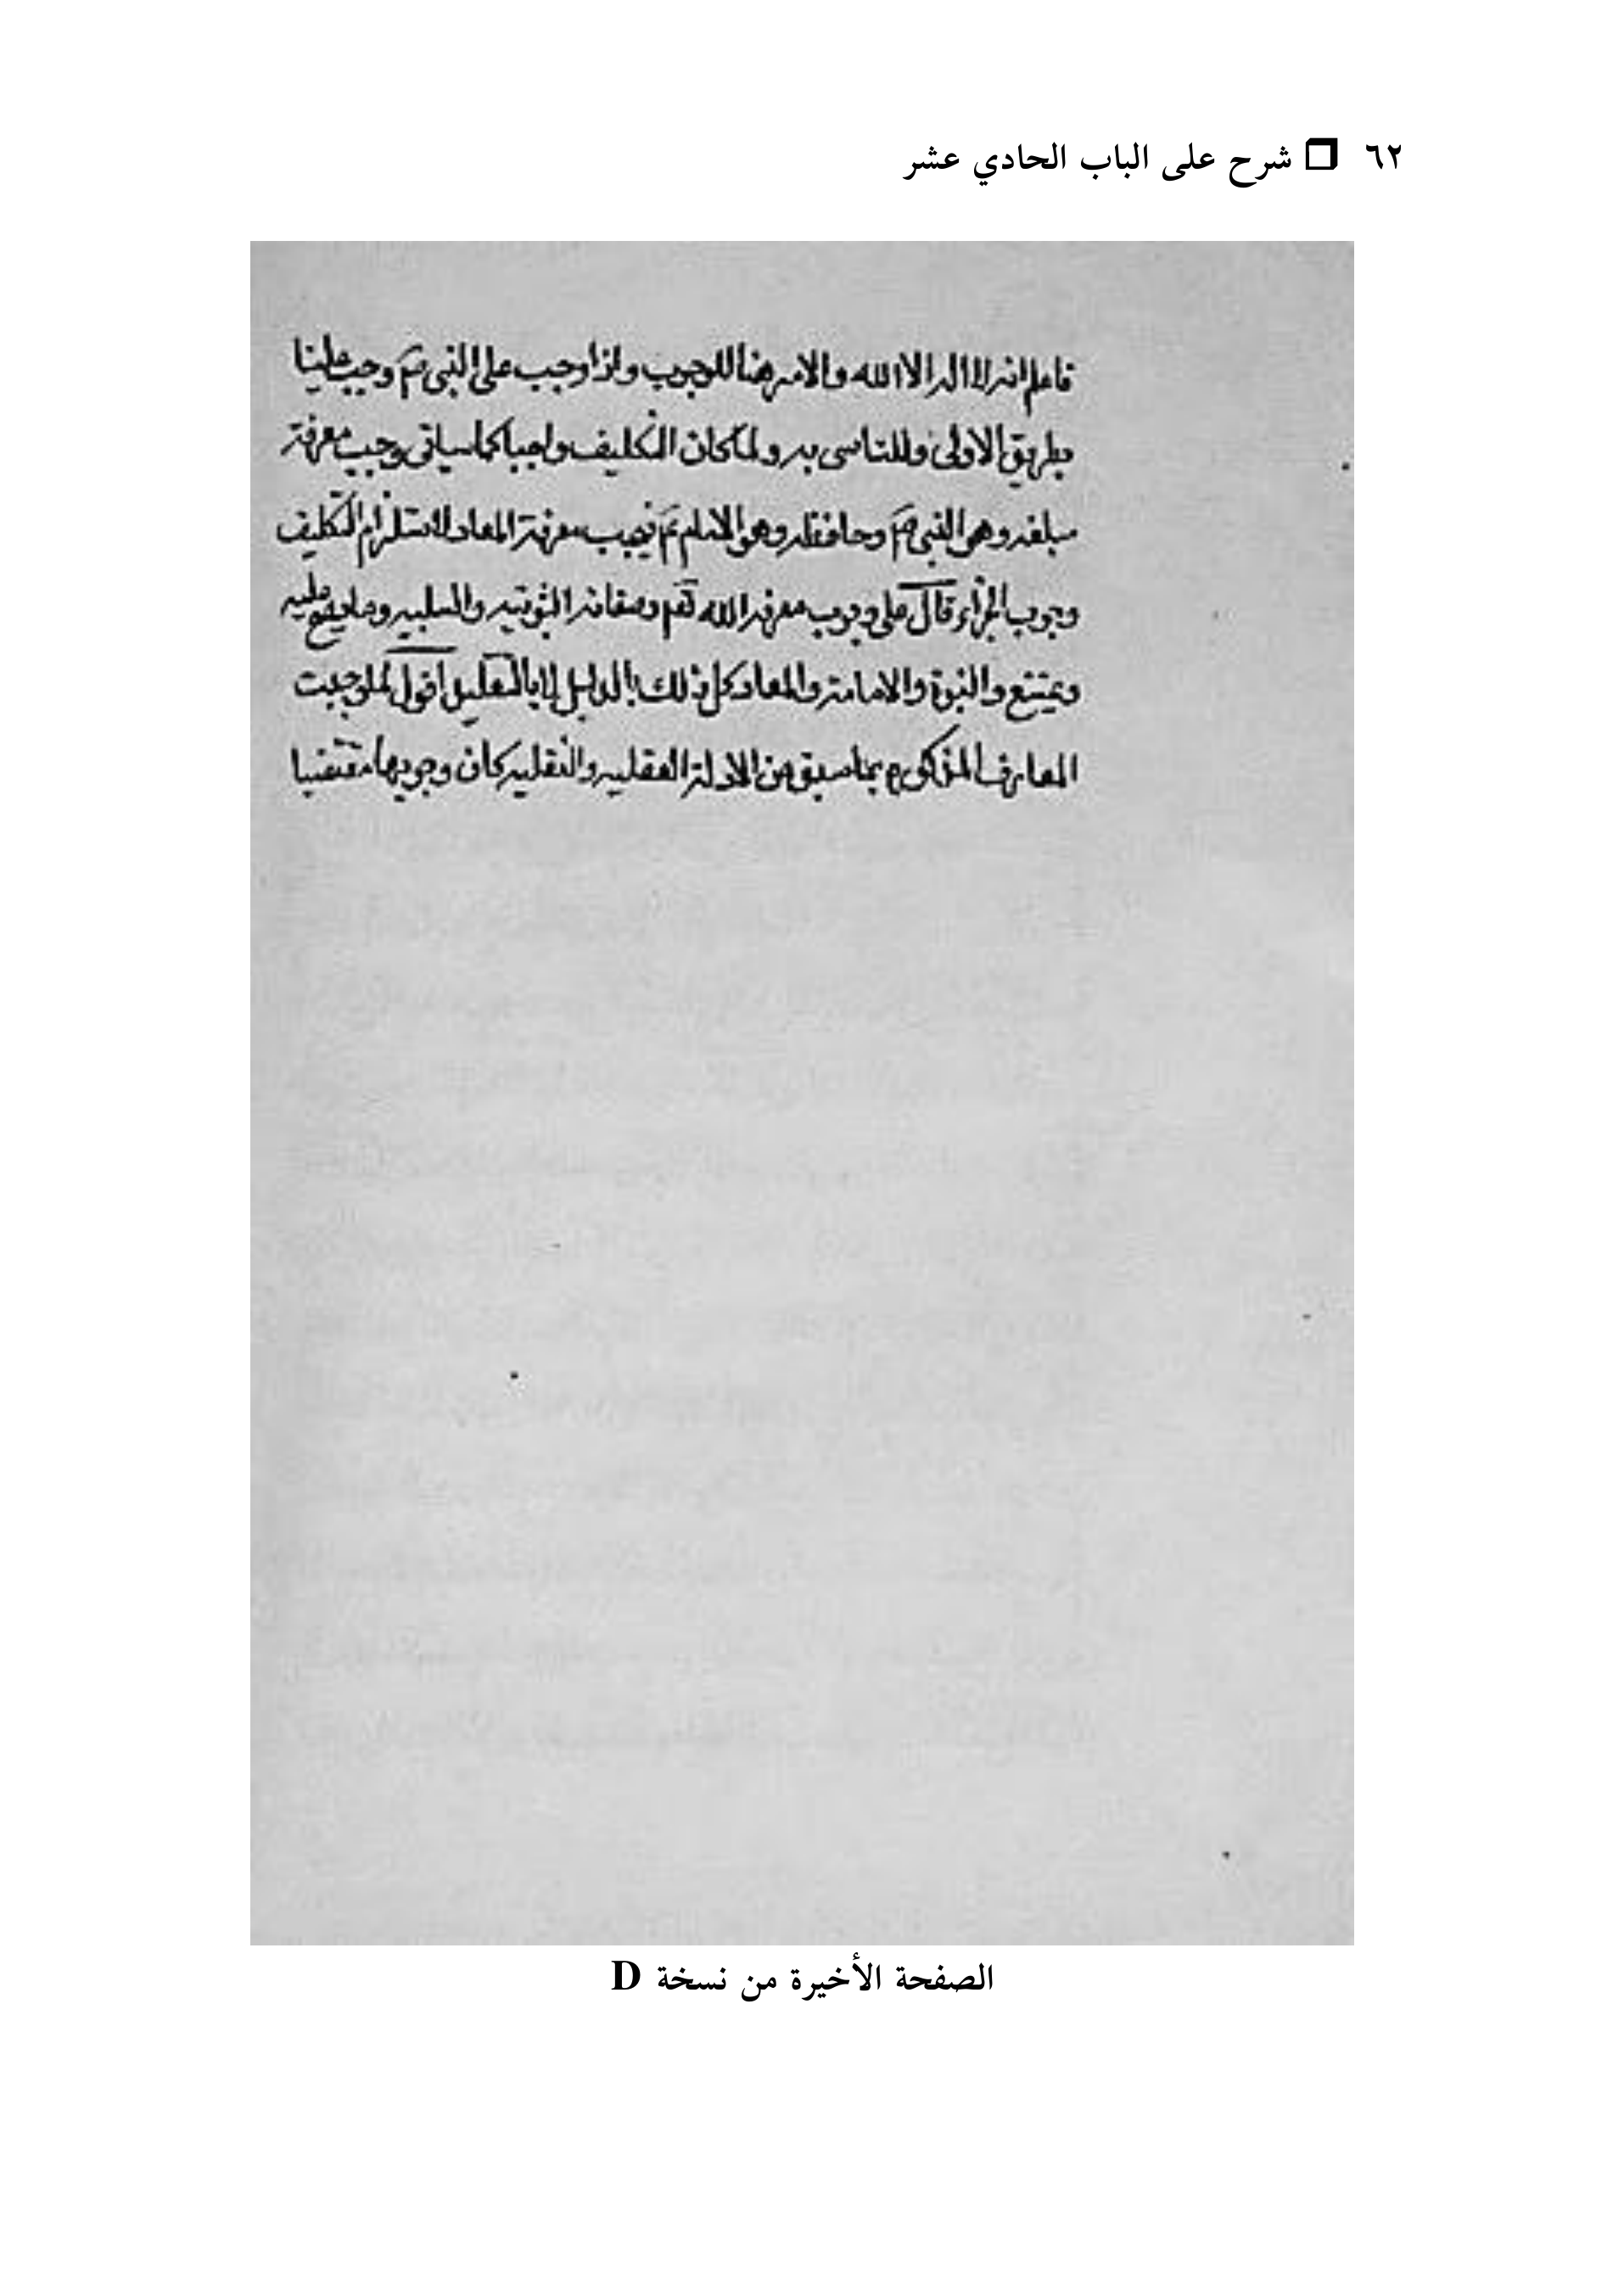 ٦٢ ❒ شرح على الباب الحادي عشر
فاعلم انه لا اله الا الله والامر هنا للوجوب واذا وجب على النبي صم وجب علينا
بطريق الاولى وللتاسى به ولما كان التكليف واجبا كما سياتى وجب معرفة
مبلغه وهى النبي صم وحافظه وهو الامام عم فيجب معرفة المعاد لاستلزام التكليف
وجوب الجزاء قال على وجوب معرفة الله تعم وصفاته الثبوتيه والسلبيه وما يصح عليه
ويمتنع والنبوة والامامة والمعاد كل ذلك بالدليل لا بالتقليد اقول لما وجبت
المعارف المذكوره بما سبق من الادلة العقليه والنقليه كان وجوبها مقتضيا
الصفحة الأخيرة من نسخة D